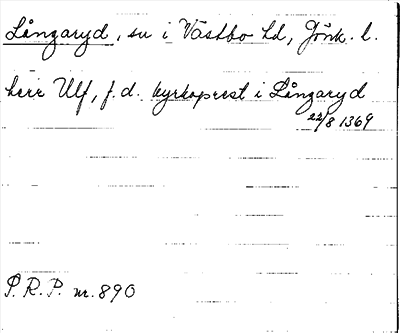 Långaryd, sn i Västbo hd, Jönk. l.
herr Ulf, f.d. kyrkoprest i Långaryd
22/8 1369
P.R.P. nr. 890